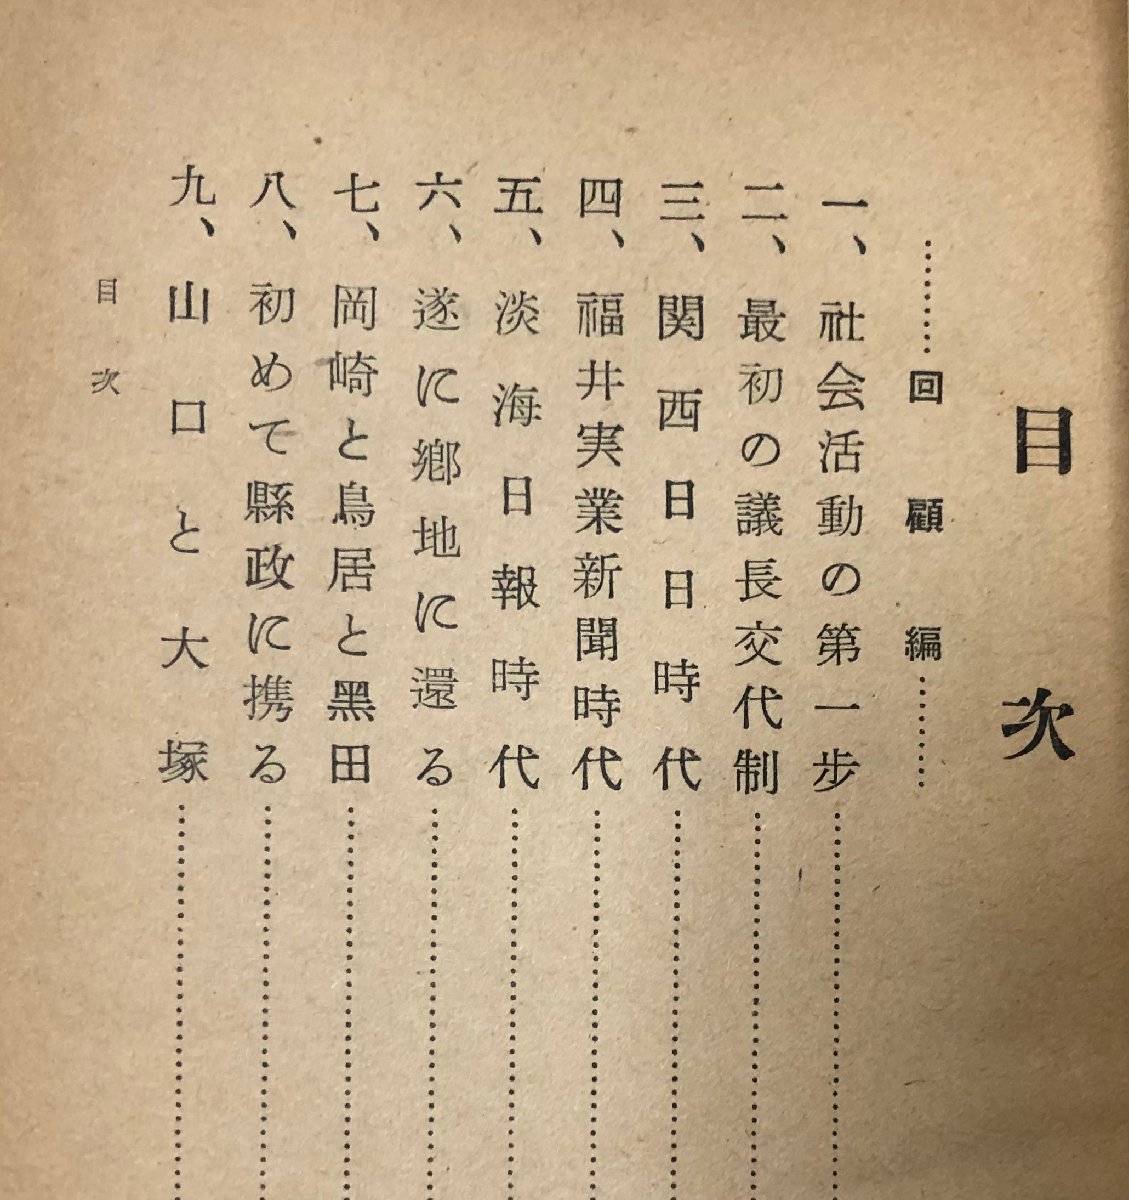 目次
……回顧編……
一、社会活動の第一歩……
二、最初の議長交代制……
三、関西日日時代……
四、福井実業新聞時代……
五、淡海日報時代……
六、遂に郷地に還る……
七、岡崎と鳥居と黒田……
八、初めて縣政に携る……
九、山口と大塚……
目次